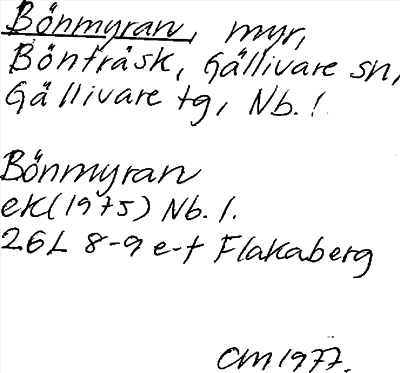 Bönmyran, myr,
Bönträsk, Gällivare sn,
Gällivare tg, Nb. l
Bönmyran
ek(1975) Nb. l.
26L 8-9 e-f Flakaberg
CM 1977.